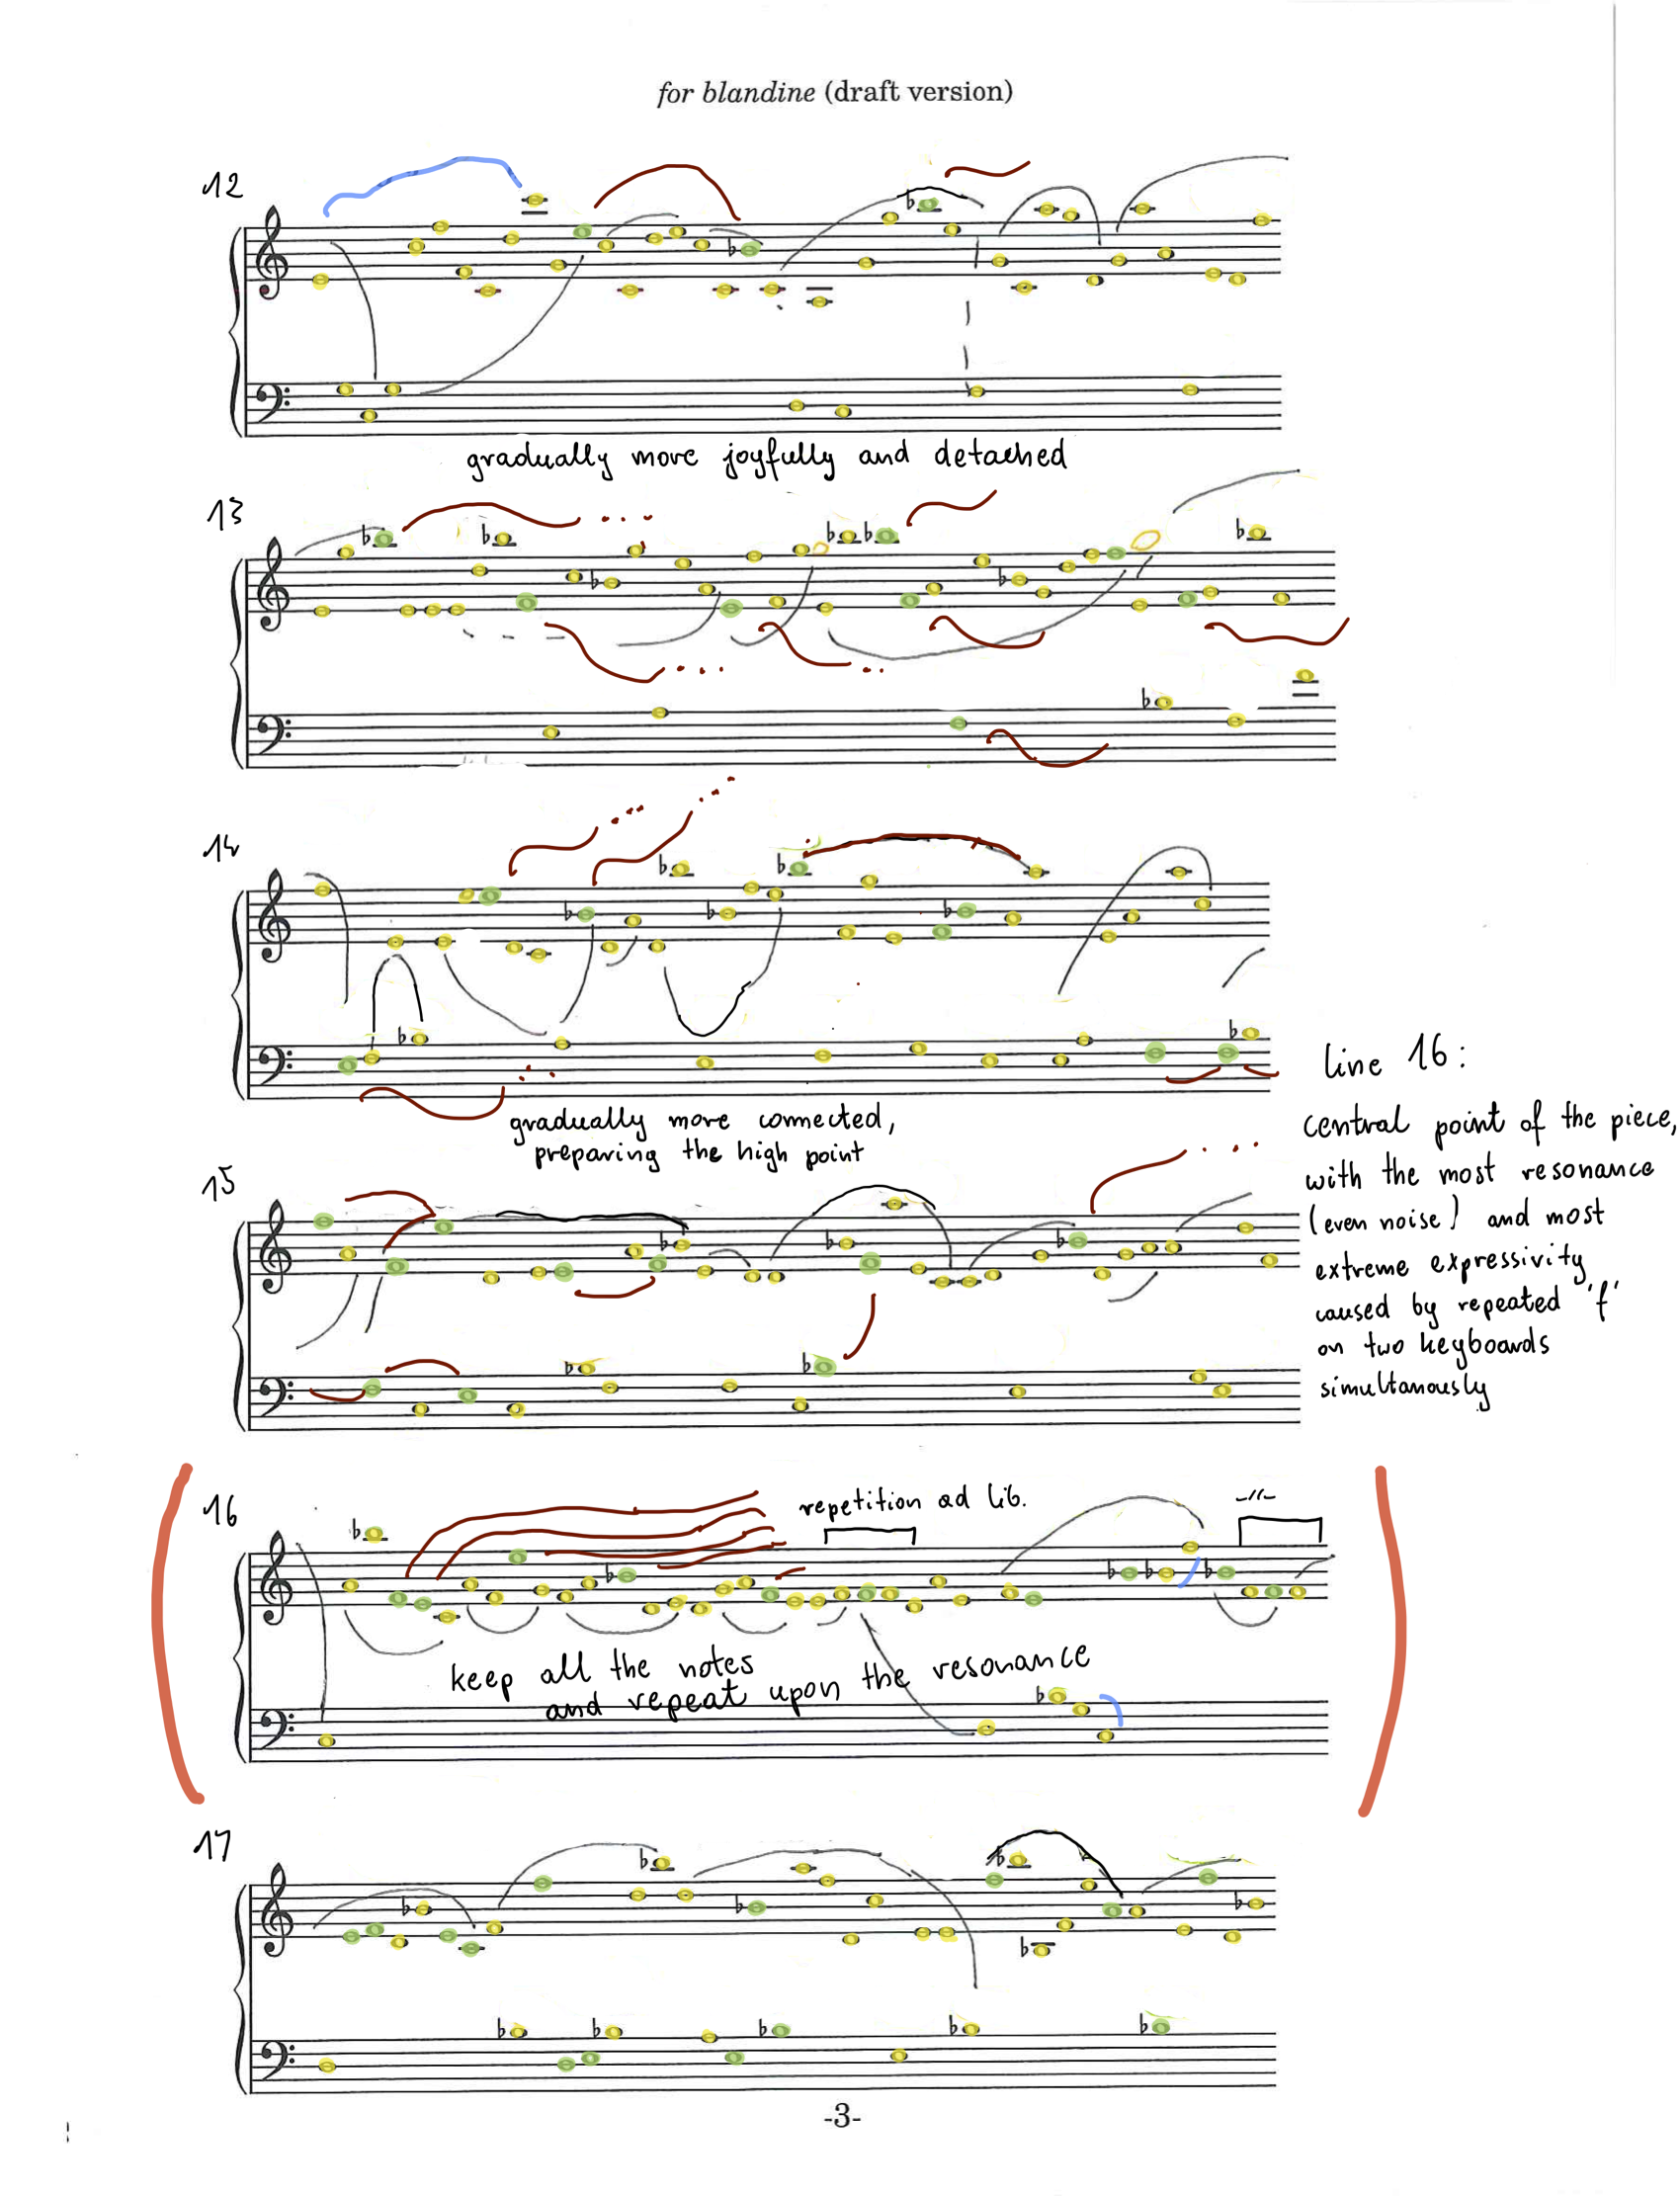 for blandine (draft version)
12
gradually more joyfully and detached
13
14
gradually more connected,
preparing the high point
line 16:
central point of the piece,
with the most resonance
(even noise) and most
extreme expressivity
caused by repeated 'f'
on two keyboards
simultanously
15
16
repetition ad lib.
-//-
keep all the notes
and repeat upon the resonance
17
-3-